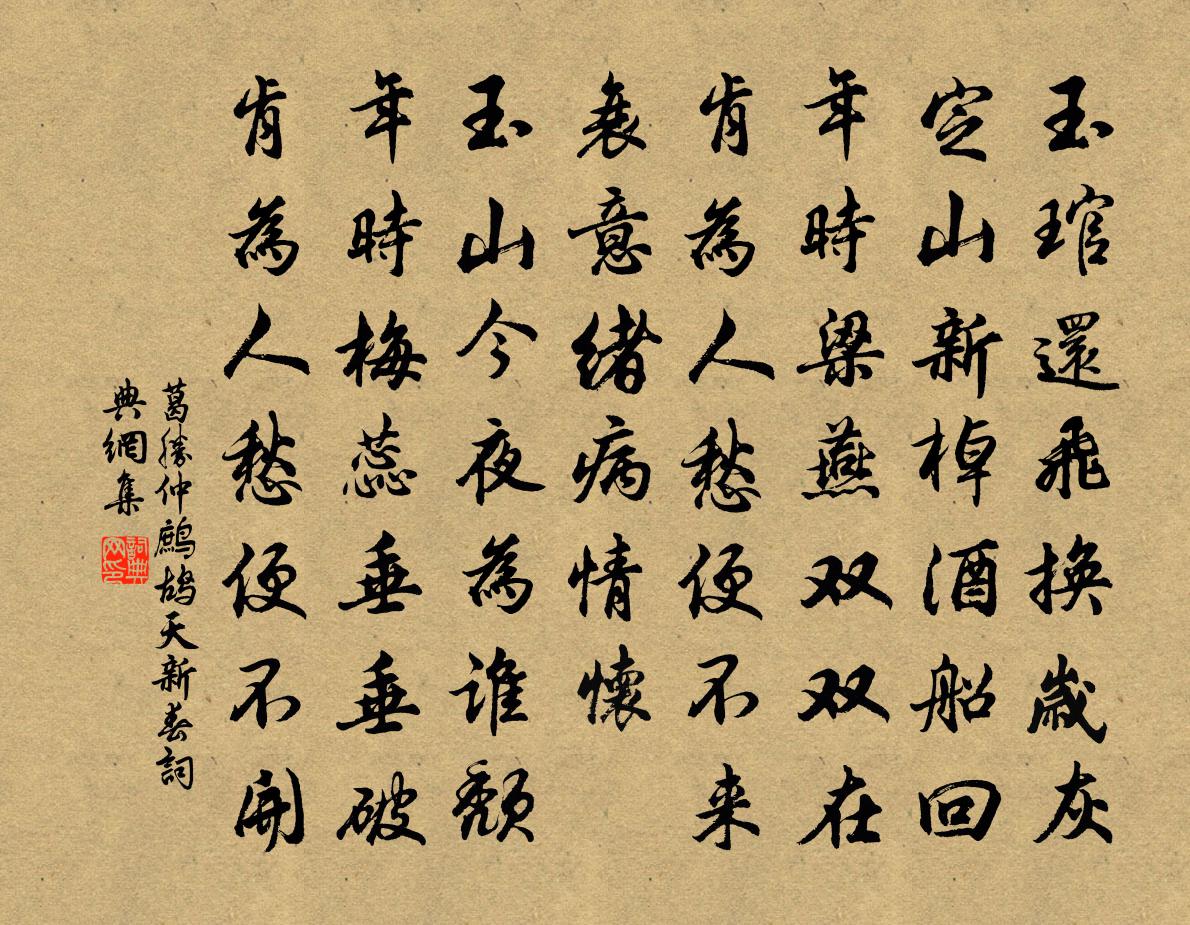 玉琯還飛換歲灰
定山新棹酒船回
年時梁燕双双在
肯為人愁便不来
衰意緒病情懷
玉山今夜為誰頹
年時梅蕊垂垂破
肯為人愁便不開
葛勝仲鷓鴣天新春詞
典網集
詞典网印